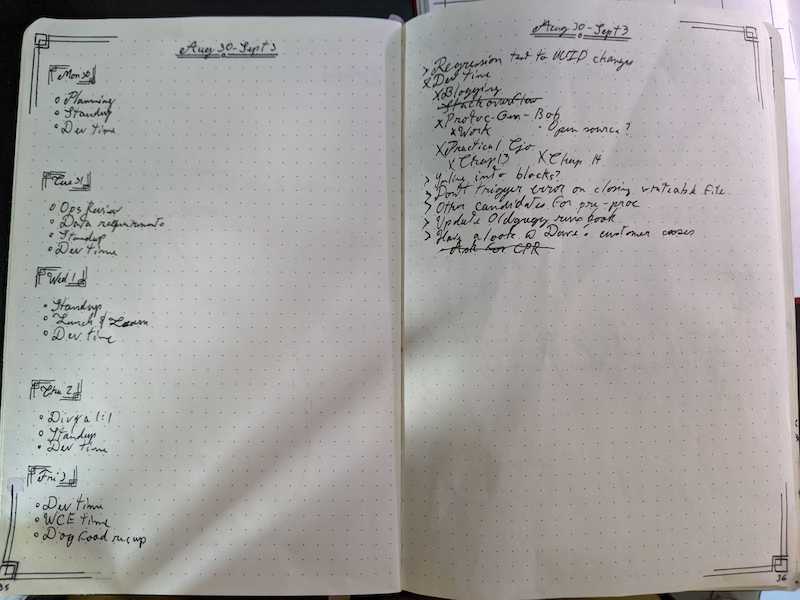 Aug 30 - Sept 3
Mon 30
Planning
Standup
Dev time
Tue 31
Ops Review
Data requirements
Standup
Dev time
Wed 1
Standup
Lunch & Learn
Dev time
Thu 2
Divya 1:1
Standup
Dev time
Fri 3
Dev time
WCE time
Dog food recap
35
Aug 30 - Sept 3
> Regression test to UUID changes
X Dev time
X Blogging
Stack overflow
X Protoc-Gen-Bob
X Work · Open source?
X Practical Go
X Chap 13 X Chap 14
> into blocks?
> Don't trigger error on closing file
> Other candidates for pre-proc
> Update Oldgregg runbook
> Have a look @ Dave's customer cases
Ask for CPR
36